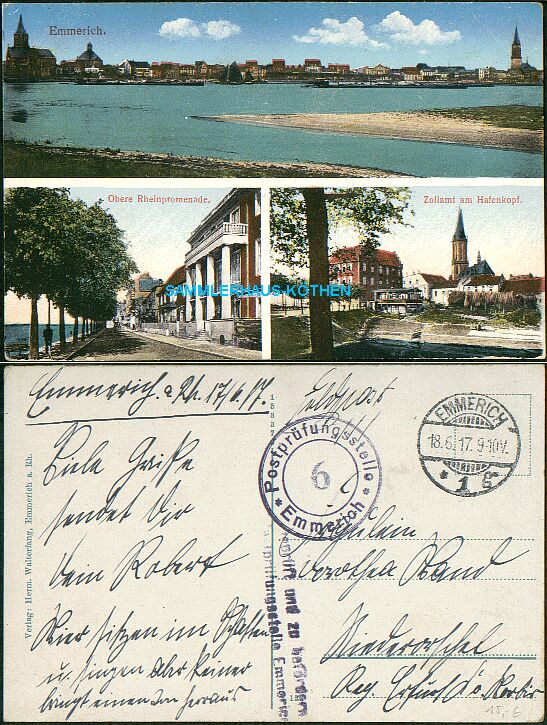 Emmerich.
Obere Rheinpromenade.
Zollamt am Hafenkopf.
SAMMLERHAUS-KÖTHEN
Emmerich a. Rh. 17/6. 17.
Viele Grüße
sendet Dir
Dein Robert
Wir sitzen im Schatten
u. singen aber keiner
bringt einen heraus
Verlag: Herm. Walterfang, Emmerich a. Rh.
Feldpost
Postprüfungsstelle
6
Emmerich
EMMERICH
18.6.17.9-10V.
* 1 g *
Fräulein
Dorothea
Niederorschel
Reg. Erfurt
und zu befördern
prüfungsstelle Emmerich
15,-€